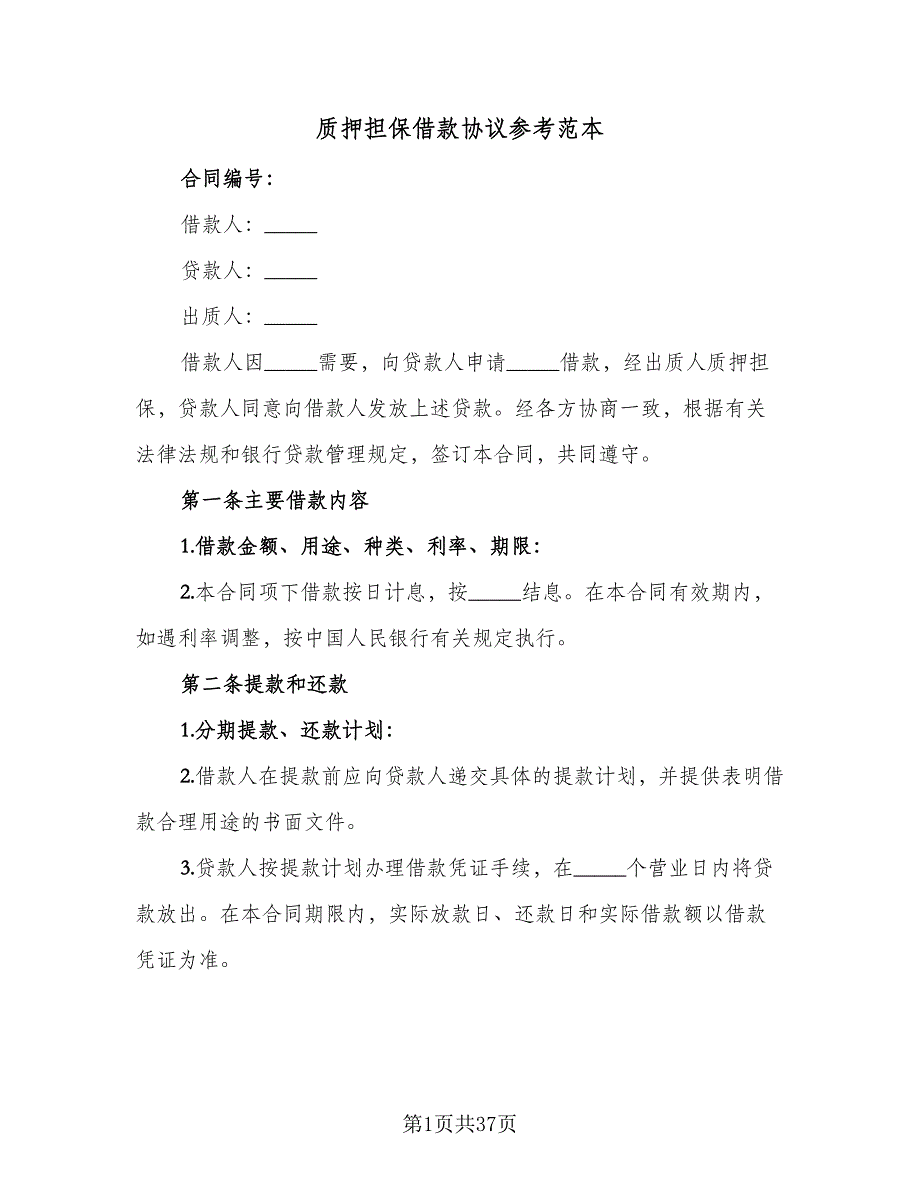 质押担保借款协议参考范本
合同编号：
借款人：_____
贷款人：_____
出质人：_____
借款人因_____需要，向贷款人申请_____借款，经出质人质押担
保，贷款人同意向借款人发放上述贷款。经各方协商一致，根据有关
法律法规和银行贷款管理规定，签订本合同，共同遵守。
第一条主要借款内容
1.借款金额、用途、种类、利率、期限：
2.本合同项下借款按日计息，按_____结息。在本合同有效期内，
如遇利率调整，按中国人民银行有关规定执行。
第二条提款和还款
1.分期提款、还款计划：
2.借款人在提款前应向贷款人递交具体的提款计划，并提供表明借
款合理用途的书面文件。
3.贷款人按提款计划办理借款凭证手续，在_____个营业日内将贷
款放出。在本合同期限内，实际放款日、还款日和实际借款额以借款
凭证为准。
第1页共37页